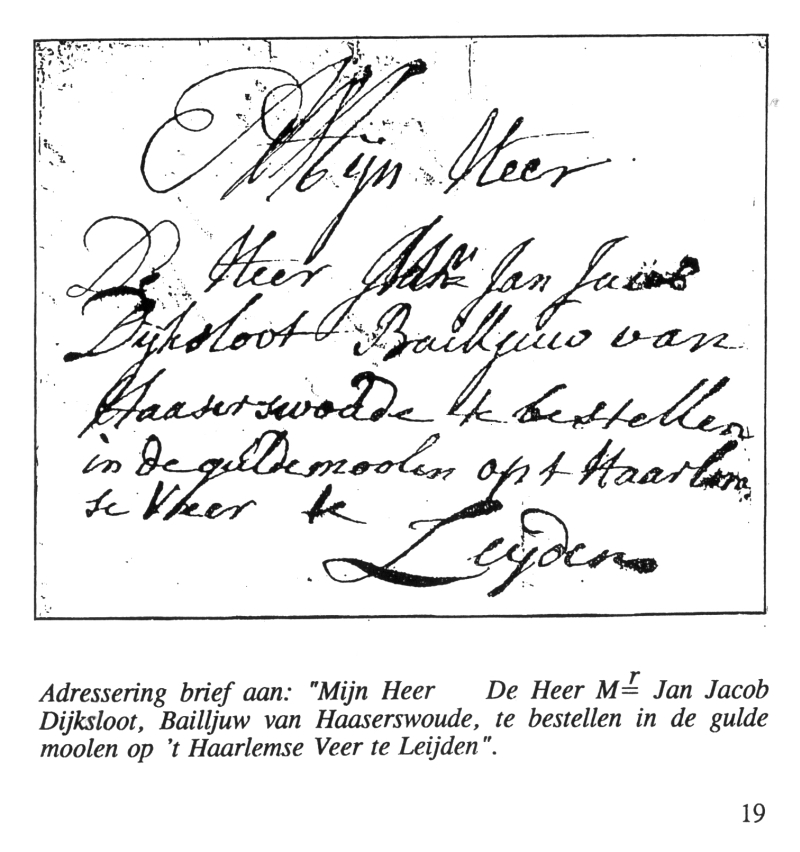 Mijn Heer
De Heer Mr Jan Jacob
Dijksloot Bailljuw van
Haaserswoude te bestellen
in de gulde moolen op t Haarlem
se Veer te
Leijden
Adressering brief aan: "Mijn Heer De Heer Mr Jan Jacob
Dijksloot, Bailljuw van Haaserswoude, te bestellen in de gulde
moolen op 't Haarlemse Veer te Leijden".
19